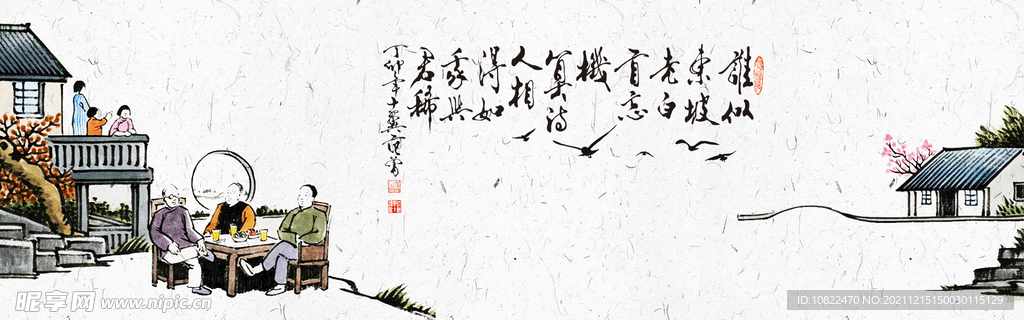 誰似
東坡
老白
首忘
機
算詩
人相
得如
我與
君稀
丁卯年十翼范曾
昵享网 www.nipic.cn
ID:10822470 NO:20211215150030115129